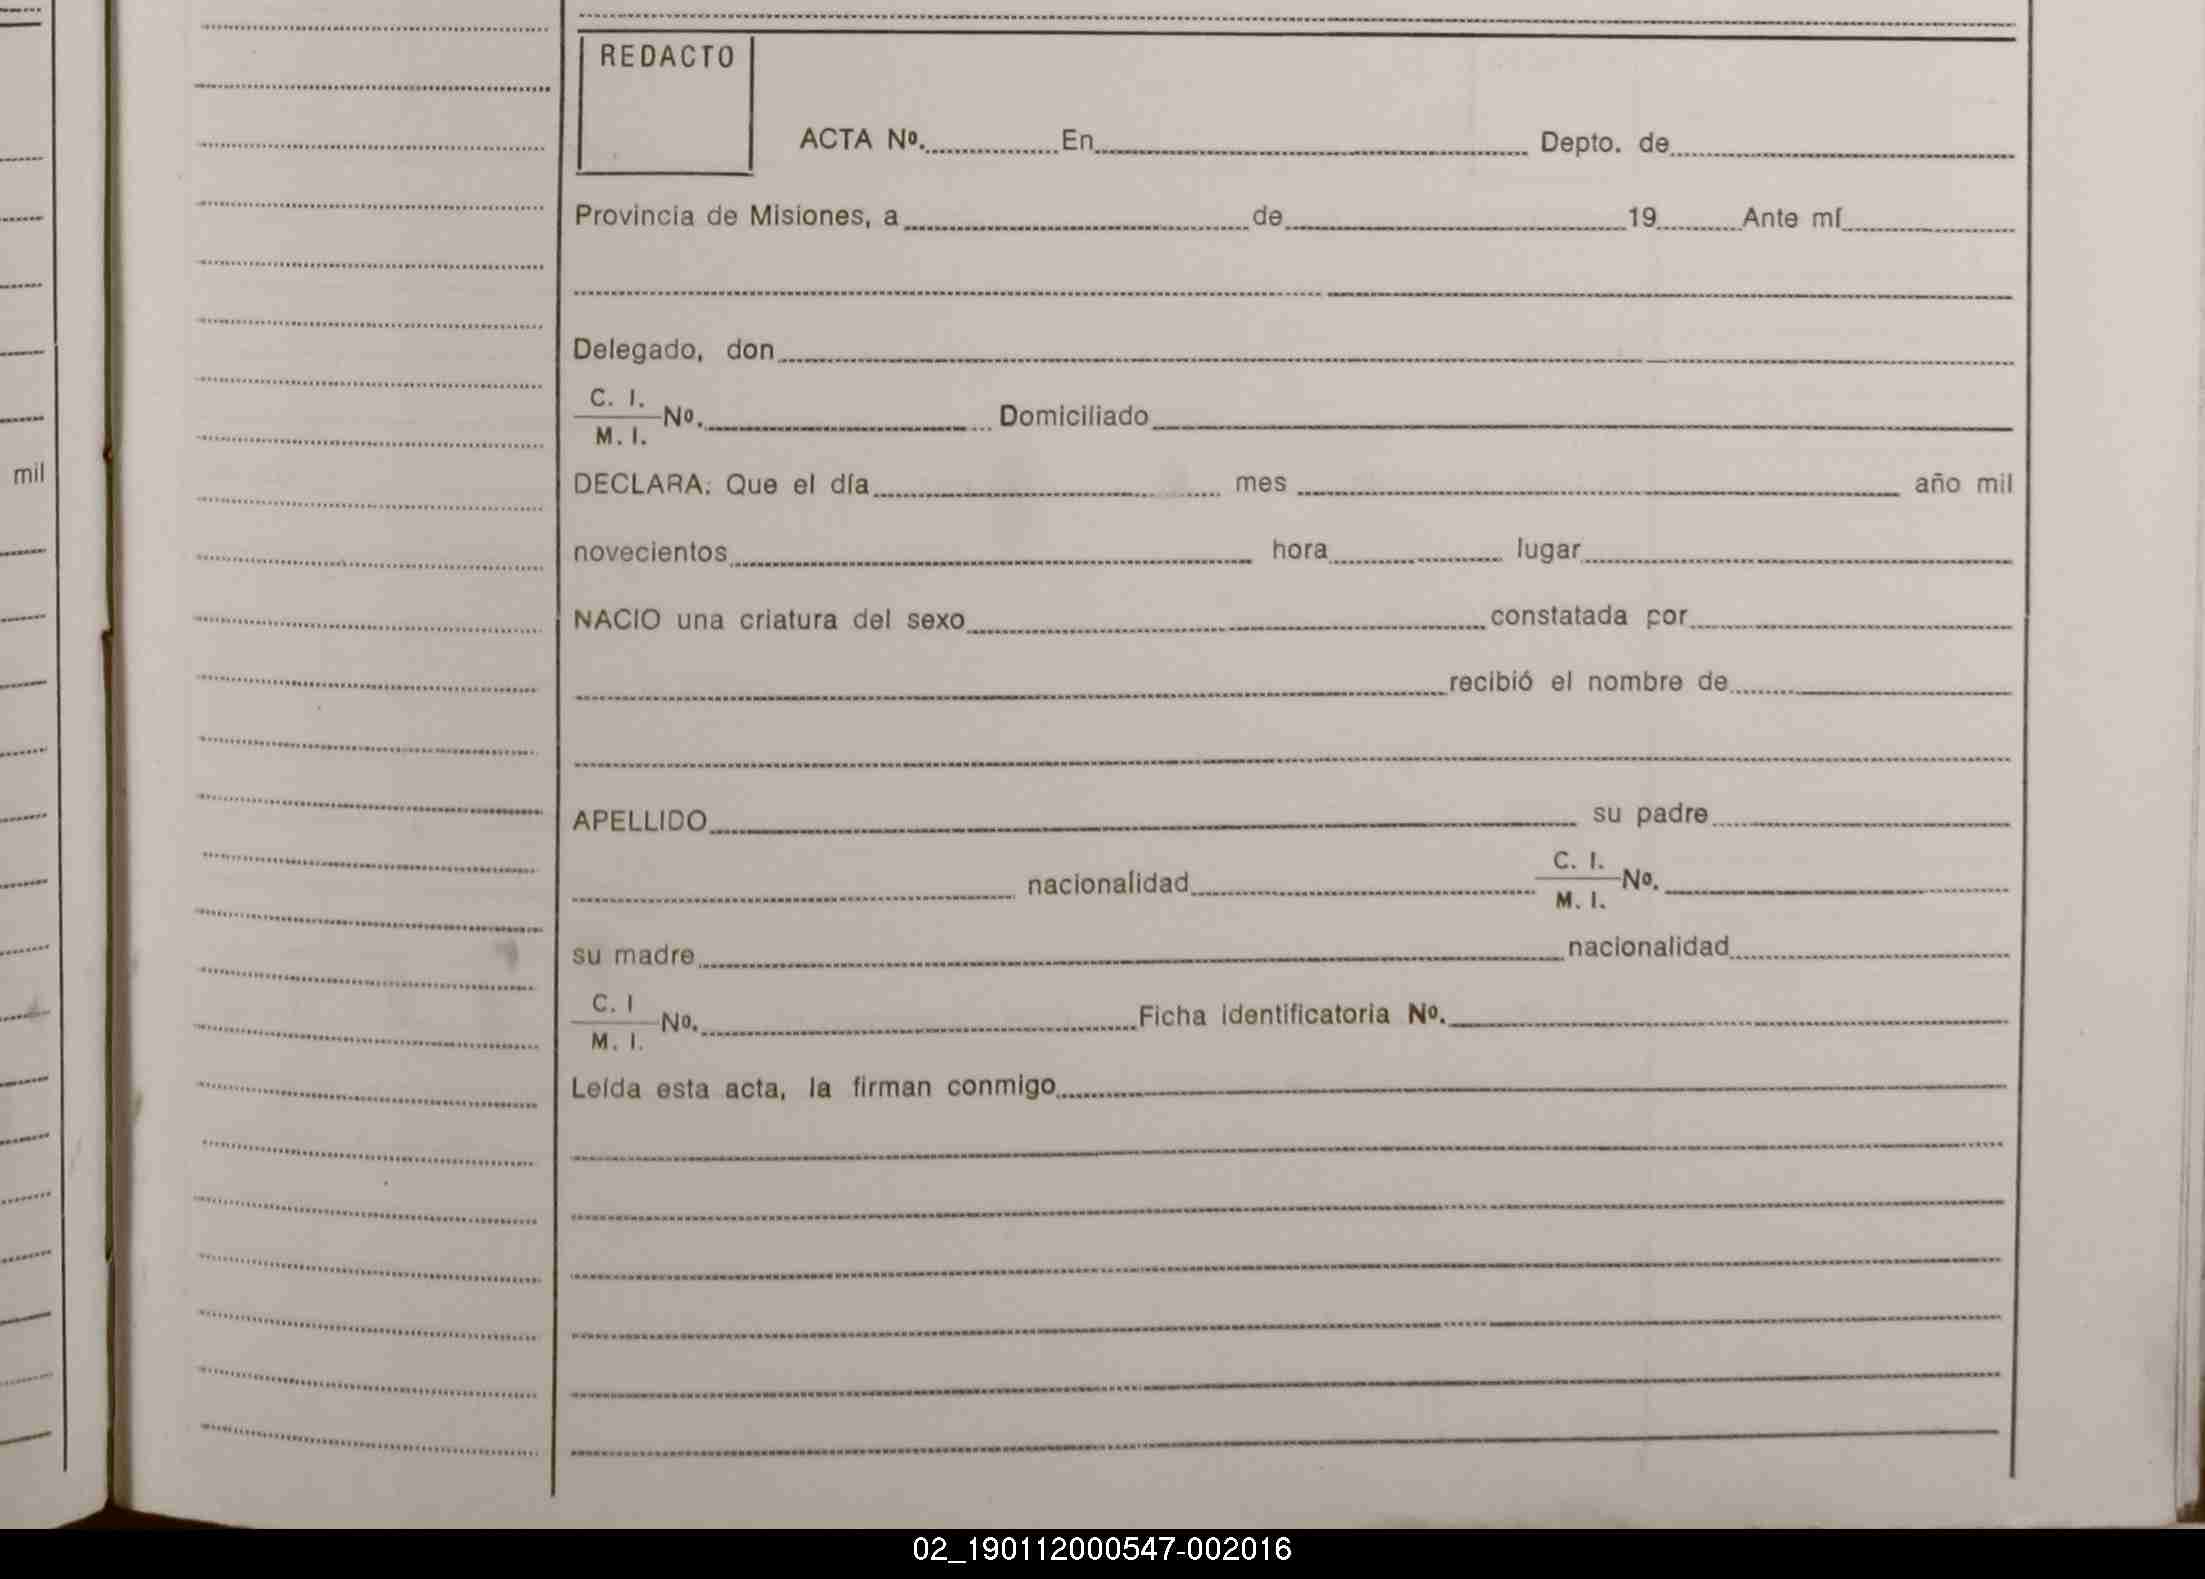 REDACTO
ACTA Nº. En Depto. de
Provincia de Misiones, a de 19 Ante mí
Delegado, don
C. I.
M. I. Nº. Domiciliado
DECLARA: Que el día mes año mil
mil
novecientos hora lugar
NACIO una criatura del sexo constatada por
recibió el nombre de
APELLIDO su padre
nacionalidad C. I.
M. I. Nº.
su madre nacionalidad
C. I
M. I. Nº. Ficha identificatoria Nº.
Leída esta acta, la firman conmigo
02_190112000547-002016